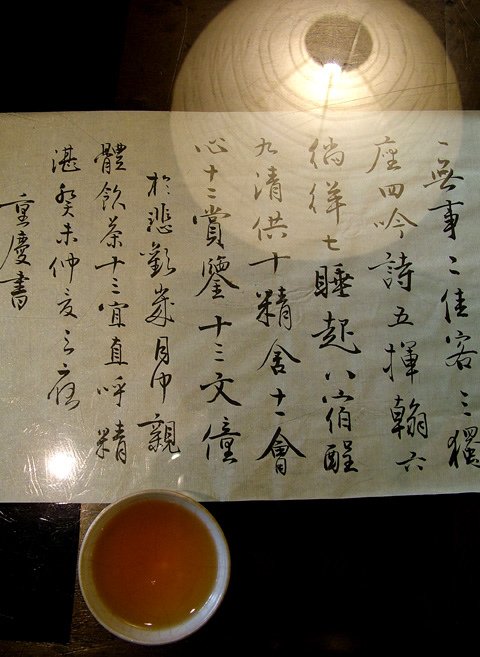 一無事二佳客三獨
座四吟詩五揮翰六
徜徉七睡起八宿酲
九清供十精舍十一會
心十二賞鑒十三文僮
於悲歡歲月中親
體飲茶十三宜直呼精
湛癸未仲夏之夜
重慶書